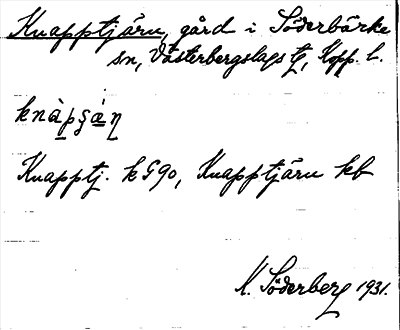 Knapptjärn, gård i Söderbärke
sn, Västerbergslags tg, Kopp. l.
knàpʂá̱ɳ
Knapptj. kG90, Knapptjärn kb
N. Söderberg 1931.